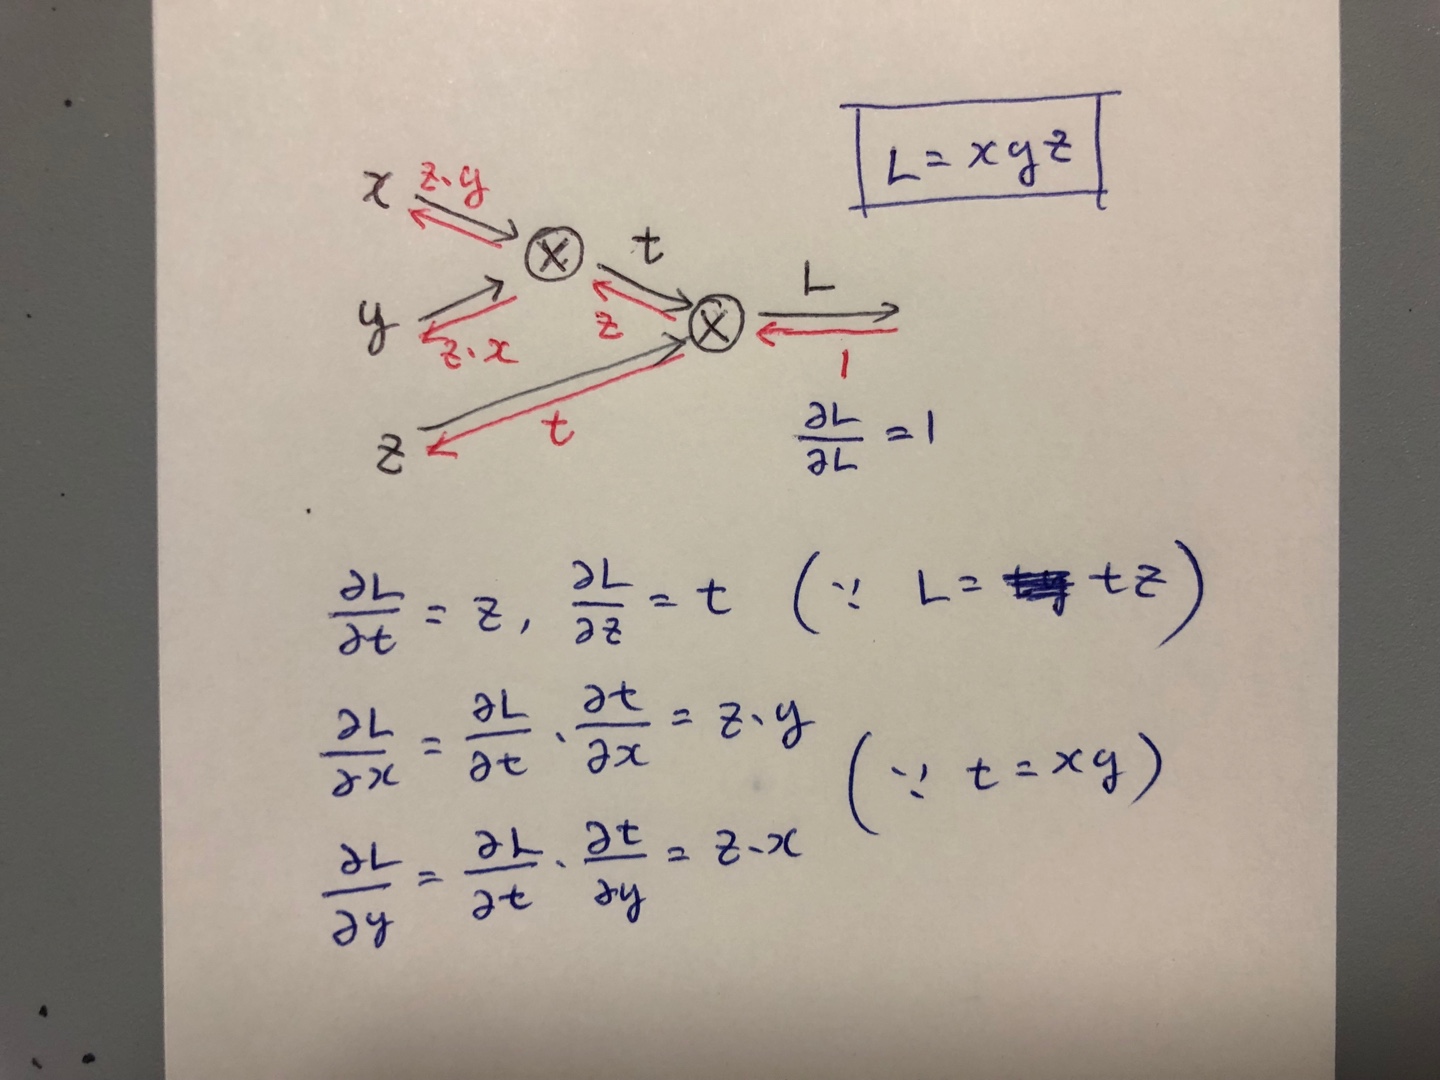 L = xyz
x z·y
⊗ t
y z·x
z ⊗ L
1
z t
∂L/∂L = 1
∂L/∂t = z, ∂L/∂z = t (∵ L = tz)
∂L/∂x = ∂L/∂t · ∂t/∂x = z·y
(∵ t = xy)
∂L/∂y = ∂L/∂t · ∂t/∂y = z·x